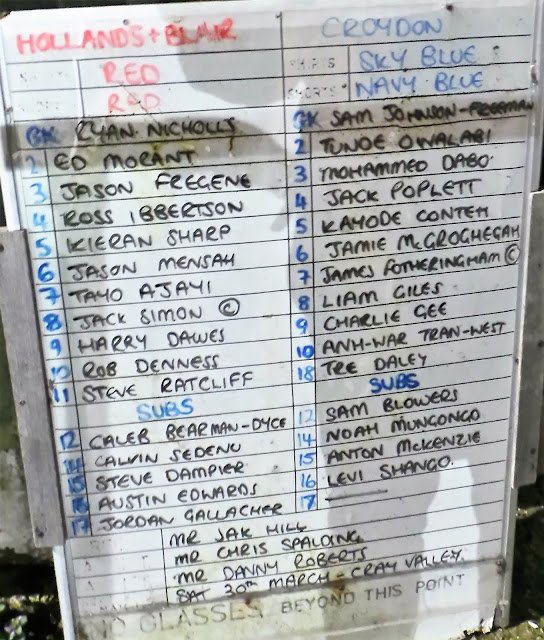 HOLLANDS + BLAIR CROYDON
RED SHIRTS SKY BLUE
RED SHORTS NAVY BLUE
GK RYAN NICHOLLS GK SAM JOHNSON-FREEMAN
2 ED MORANT 2 TUNDE OWALABI
3 JASON FREGENE 3 MOHAMMED DABO
4 ROSS IBBERTSON 4 JACK POPLETT
5 KIERAN SHARP 5 KAYODE CONTEH
6 JASON MENSAH 6 JAMIE McGROGHEGAH
7 TAYO AJAYI 7 JAMES FOTHERINGHAM ©
8 JACK SIMON © 8 LIAM GILES
9 HARRY DAWES 9 CHARLIE GEE
10 ROB DENNESS 10 ANH-WAR TRAN-WEST
11 STEVE RATCLIFF 18 TRE DALEY
SUBS SUBS
12 CALEB BEARMAN-DYCE 12 SAM BLOWERS
14 CALVIN SEDENU 14 NOAH MUNGONGO
15 STEVE DAMPIER 15 ANTON McKENZIE
16 AUSTIN EDWARDS 16 LEVI SHANGO.
17 JORDAN GALLACHER 17
MR JAK HILL
MR CHRIS SPALDING
MR DANNY ROBERTS
SAT 30TH MARCH - CRAY VALLEY.
NO GLASSES BEYOND THIS POINT